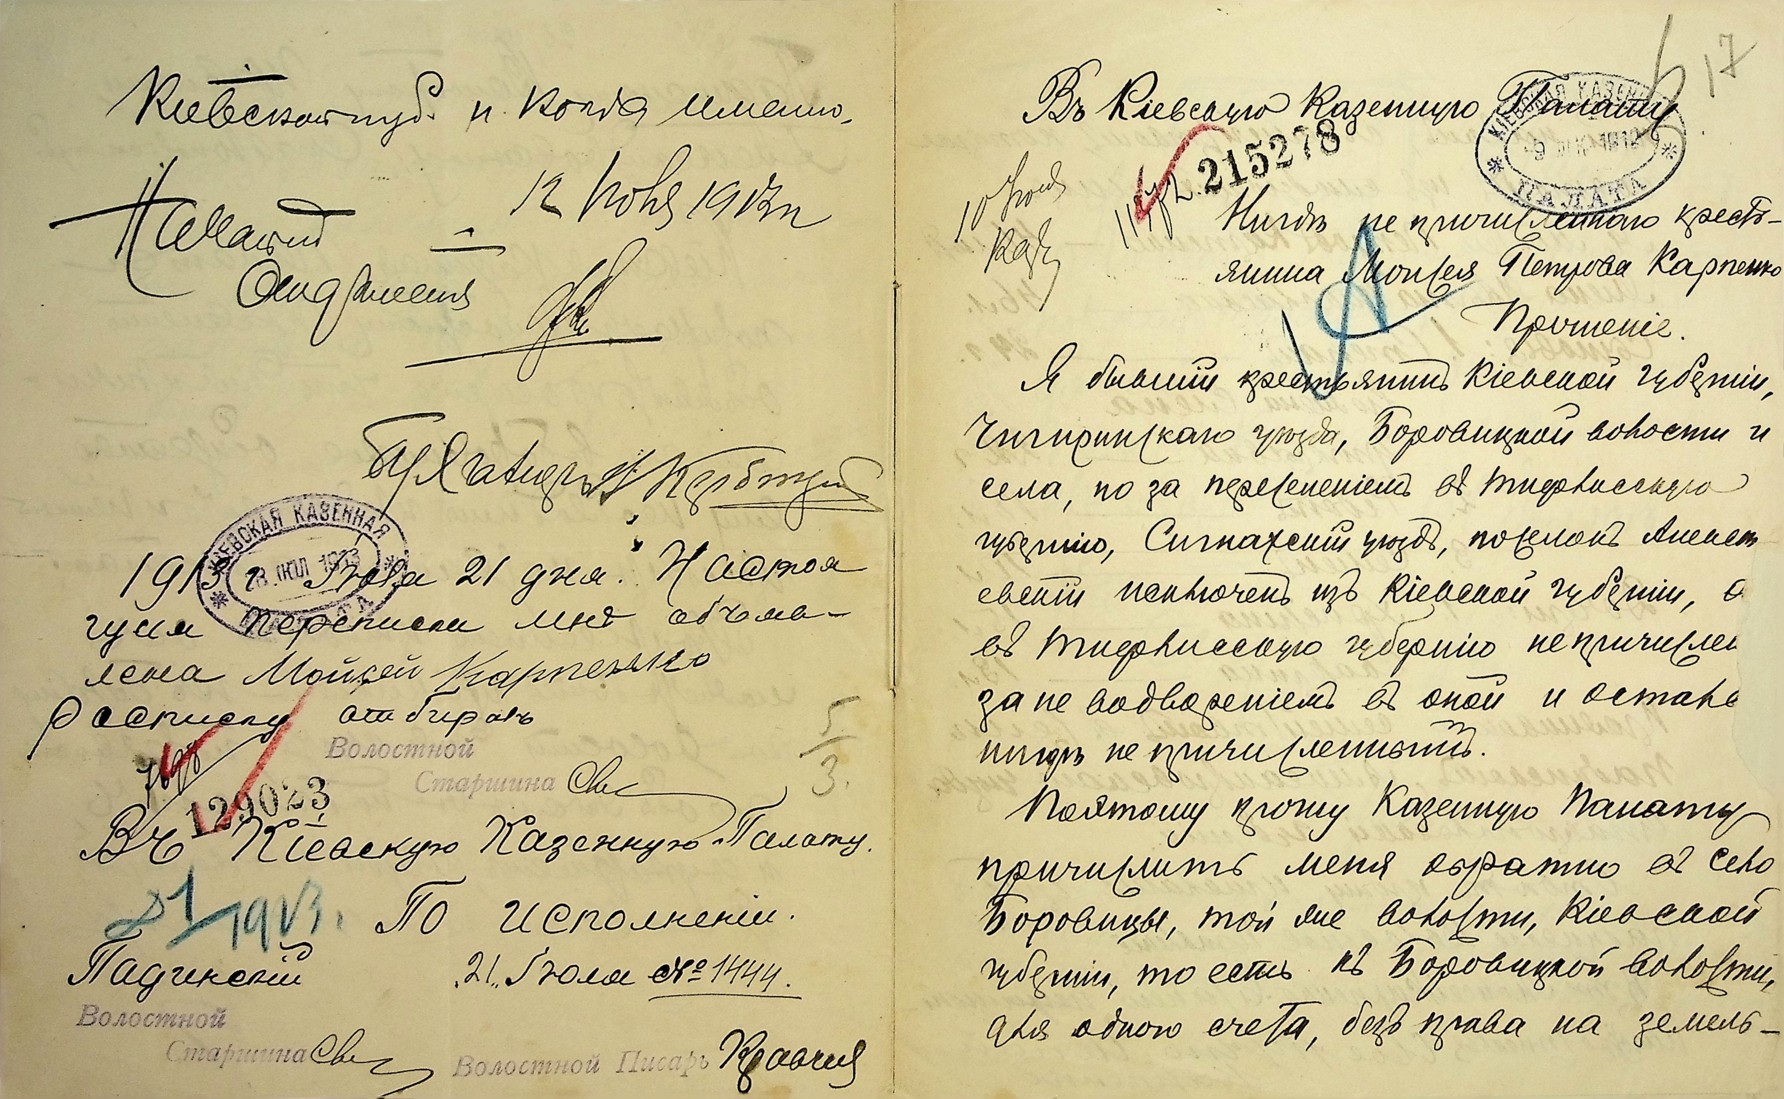 Кіевской губ. и когда именно.
12 Іюля 1913 г.
Начальникъ
Отдѣленія
Бухгалтеръ
КІЕВСКАЯ КАЗЕННАЯ ПАЛАТА
23 ІЮЛ 1913
1913 г. Іюля 21 дня. Настоя
щая переписка мнѣ объяв-
лена Мойсей Карпенко
Росписку отбиралъ
Волостной
Старшина
5/3.
129023
Въ Кіевскую Казенную Палату.
1913.
По исполненіи.
Падинскій
21 Іюля № 1444.
Волостной
Старшина
Волостной Писарь
17
Въ Кіевскую Казенную Палату
КІЕВСКАЯ КАЗЕННАЯ ПАЛАТА
215278
10 Іюля
Нигдѣ не причисленнаго кресть-
янина Моисея Петрова Карпенко
Прошеніе.
Я бывшій крестьянинъ Кіевской губерніи,
Чигиринскаго уѣзда, Боровицкой волости и
села, но за переселеніемъ въ Тифлисскую
губернію, Сигнахскій уѣздъ, поселокъ Алексѣ
евскій исключенъ изъ Кіевской губерніи, а
въ Тифлисскую губернію не причислен
за не водвореніемъ въ оной и остался
нигдѣ не причисленнымъ.
Поэтому прошу Казенную Палату
причислить меня обратно въ село
Боровицы, той же волости, Кіевской
губерніи, то есть къ Боровицкой волости,
для одного счета, безъ права на земель-